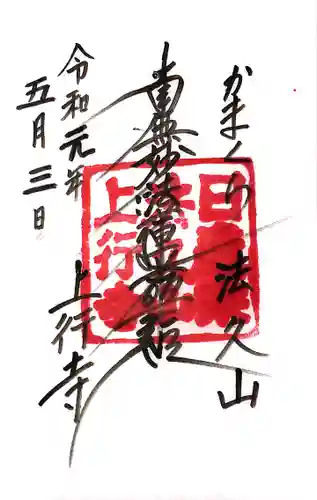 かまくら 法久山
南無妙法蓮華経
上行寺
令和元年
五月三日